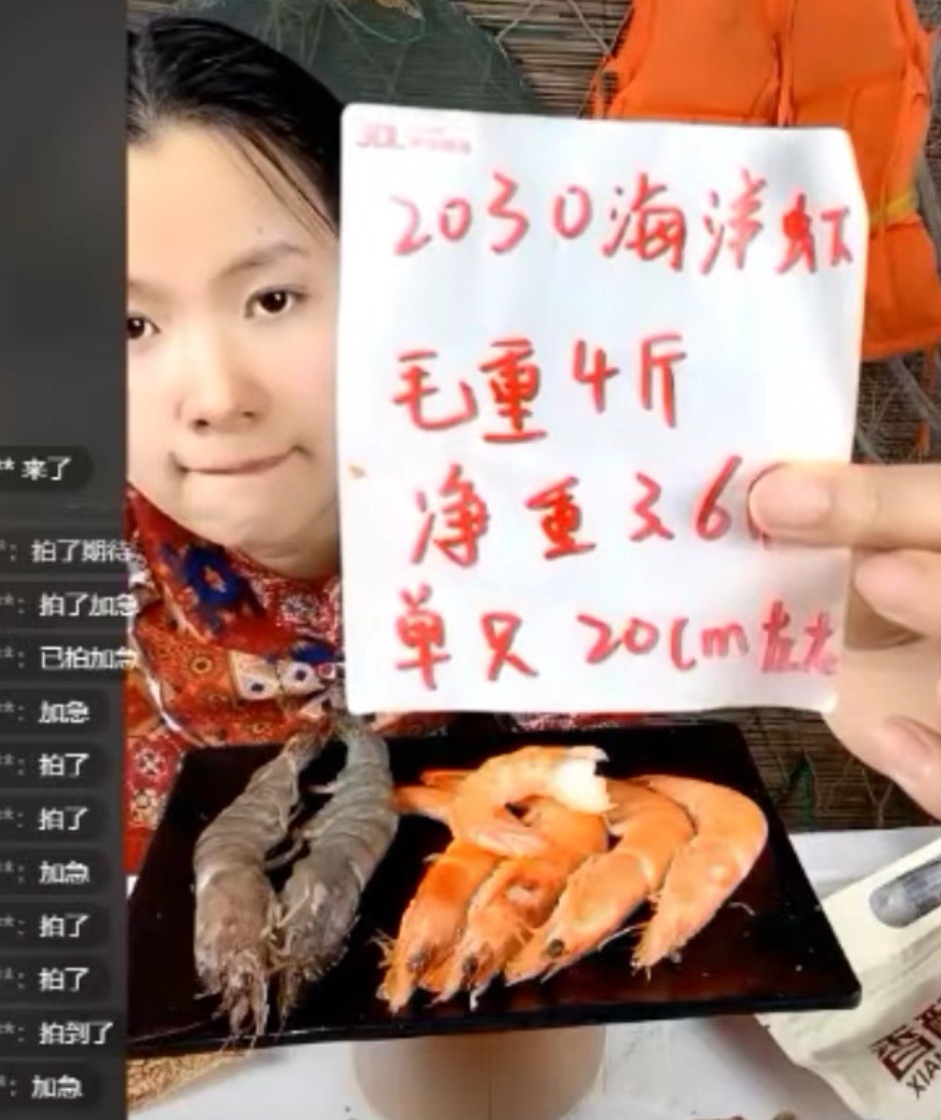 JDL
2030海洋虾
毛重4斤
净重3.6
单只 20cm左右
** 来了
*: 拍了期待
**: 拍了加急
**: 已拍加急
**: 加急
**: 拍了
**: 拍了
**: 加急
**: 拍了
**: 拍了
**: 拍到了
**: 加急
XIA